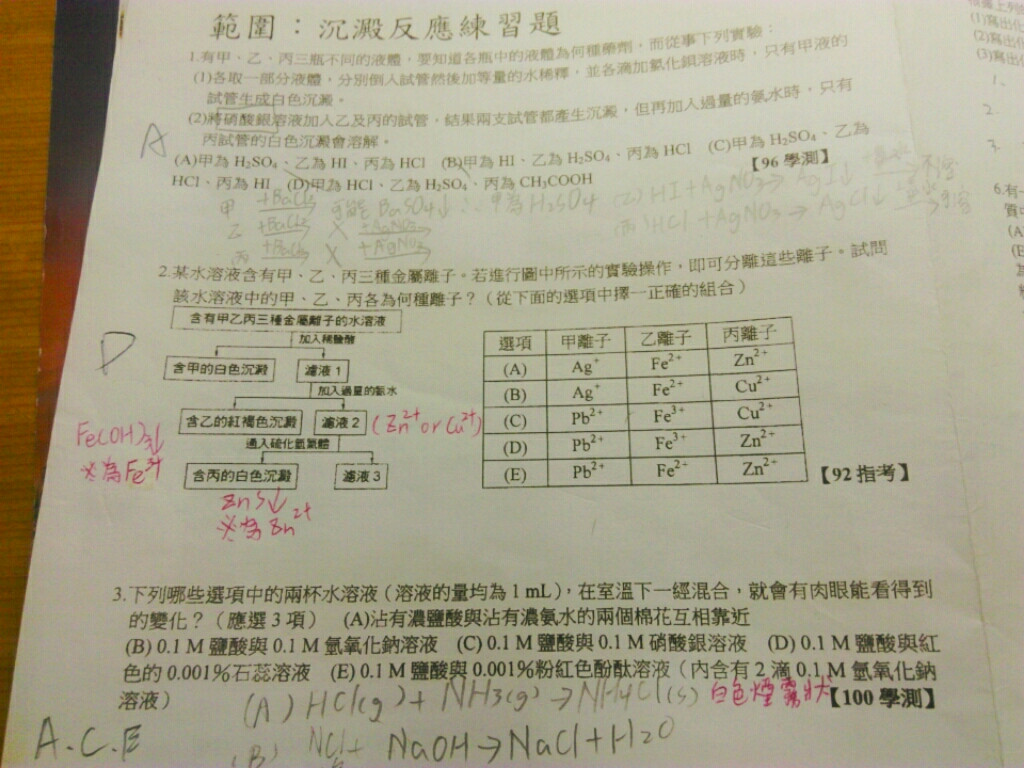 範圍：沉澱反應練習題
1.有甲、乙、丙三瓶不同的液體，要知道各瓶中的液體為何種藥劑，而從事下列實驗：
(1)各取一部分液體，分別倒入試管然後加等量的水稀釋，並各滴加氯化鋇溶液時，只有甲液的
試管生成白色沉澱。
(2)將硝酸銀溶液加入乙及丙的試管，結果兩支試管都產生沉澱，但再加入過量的氨水時，只有
丙試管的白色沉澱會溶解。
A
(A)甲為 H₂SO₄、乙為 HI、丙為 HCl (B)甲為 HI、乙為 H₂SO₄、丙為 HCl (C)甲為 H₂SO₄、乙為
HCl、丙為 HI (D)甲為 HCl、乙為 H₂SO₄、丙為 CH₃COOH 【96 學測】
甲 +BaCl₂ 可能 BaSO₄↓ ∴甲為 H₂SO₄
乙 +BaCl₂ X +AgNO₃
丙 +BaCl₂ X +AgNO₃
(乙) HI + AgNO₃ → AgI↓ 不溶
(丙) HCl + AgNO₃ → AgCl↓ 可溶
2.某水溶液含有甲、乙、丙三種金屬離子。若進行圖中所示的實驗操作，即可分離這些離子。試問
該水溶液中的甲、乙、丙各為何種離子？（從下面的選項中擇一正確的組合）
D
含有甲乙丙三種金屬離子的水溶液
加入稀鹽酸
含甲的白色沉澱 濾液 1
加入過量的氨水
含乙的紅褐色沉澱 濾液 2 (Zn²⁺ or Cu²⁺)
通入硫化氫氣體
含丙的白色沉澱 濾液 3
Fe(OH)₃↓
為Fe³⁺
ZnS↓
為Zn²⁺
選項 甲離子 乙離子 丙離子
(A) Ag⁺ Fe²⁺ Zn²⁺
(B) Ag⁺ Fe²⁺ Cu²⁺
(C) Pb²⁺ Fe³⁺ Cu²⁺
(D) Pb²⁺ Fe³⁺ Zn²⁺
(E) Pb²⁺ Fe²⁺ Zn²⁺
【92 指考】
3.下列哪些選項中的兩杯水溶液（溶液的量均為 1 mL），在室溫下一經混合，就會有肉眼能看得到
的變化？（應選 3 項） (A)沾有濃鹽酸與沾有濃氨水的兩個棉花互相靠近
(B) 0.1 M 鹽酸與 0.1 M 氫氧化鈉溶液 (C) 0.1 M 鹽酸與 0.1 M 硝酸銀溶液 (D) 0.1 M 鹽酸與紅
色的 0.001%石蕊溶液 (E) 0.1 M 鹽酸與 0.001%粉紅色酚酞溶液（內含有 2 滴 0.1 M 氫氧化鈉
溶液） 【100 學測】
(A) HCl(g) + NH₃(g) → NH₄Cl(s) 白色煙霧狀
A.C.E
(B) HCl + NaOH → NaCl + H₂O
(1)寫出
(2)寫出
(3)寫出
1.
2.
3.
6.有
(A)